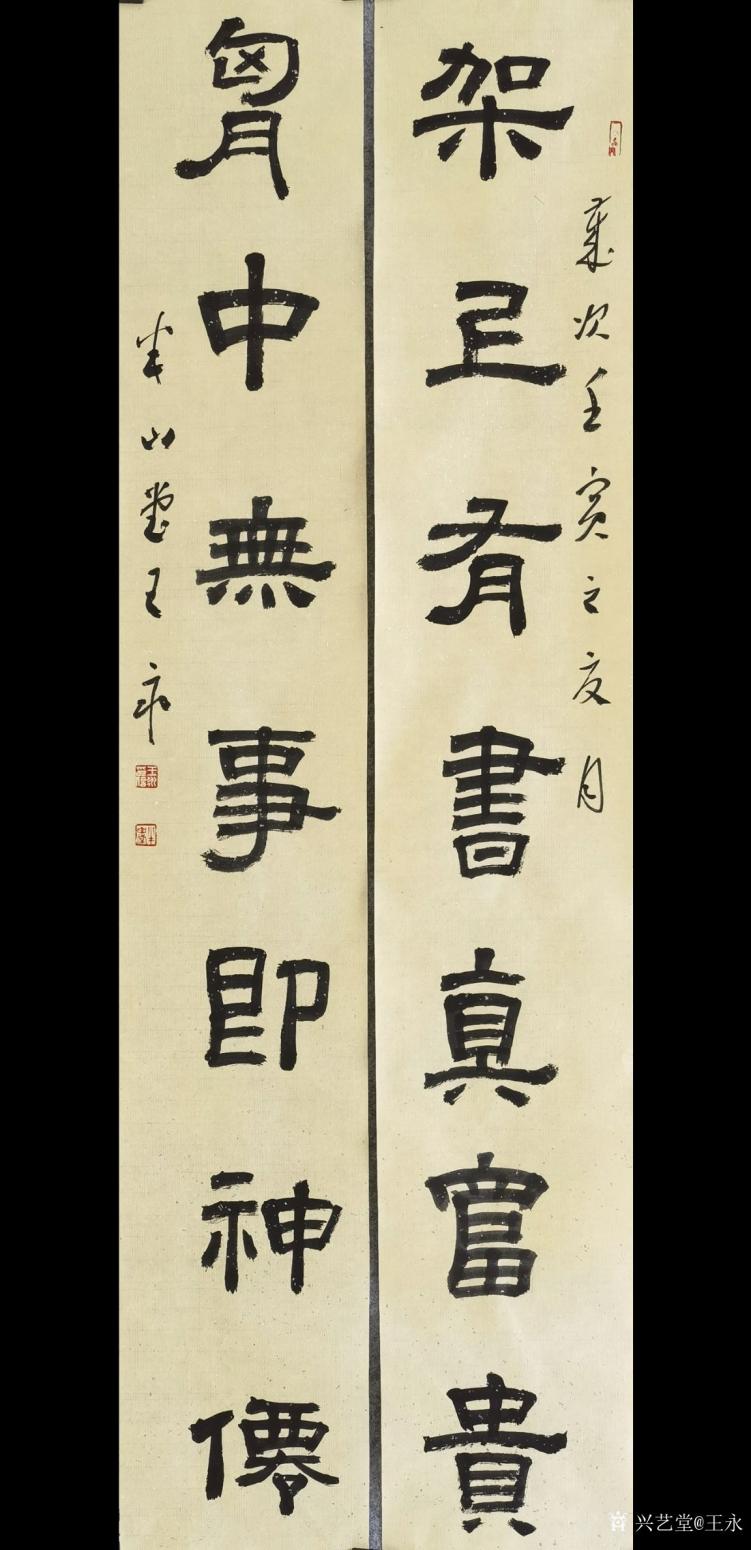 歲次壬寅之夏月
架有書真富貴
胷中無事即神僊
半山堂王永
兴艺堂@王永